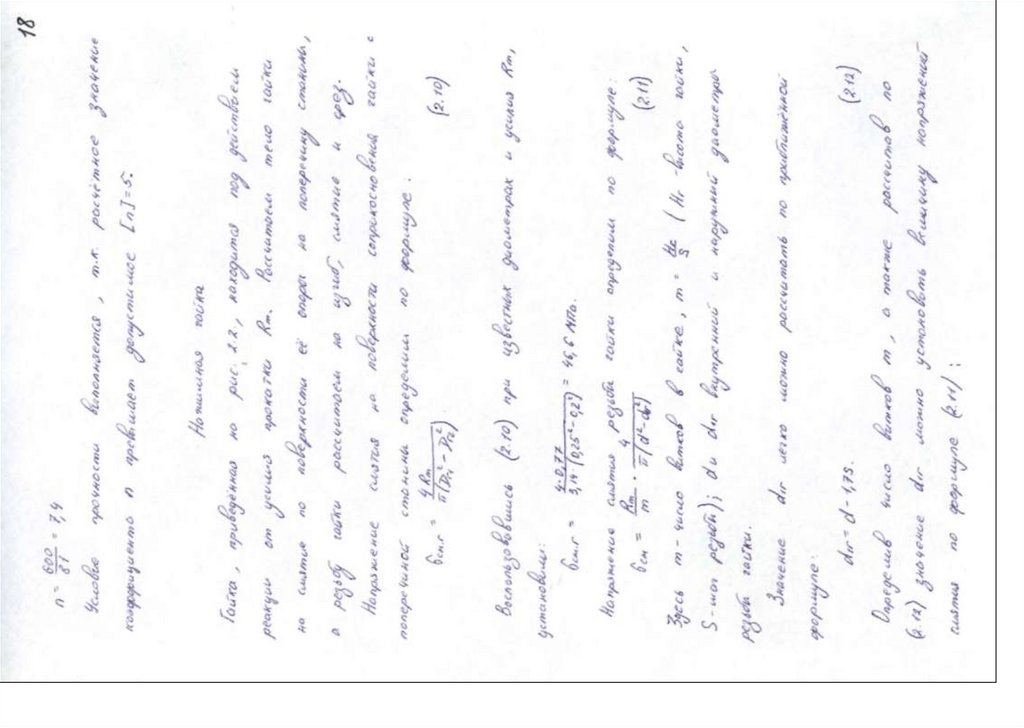 18
n = 600/81 = 7,4
Условье прочности выполняется, т.к. расчётное значение
коэффициента n превышает допустимое [n]=5.
Нажимная гайка
Гайка, приведённая на рис. 2.2., находится под действием
реакции от усилия прокатки Rm. Рассчитаем тело гайки
на смятие по поверхности её опоры на поперечину станины,
а резьбу гайки рассчитаем на изгиб, смятие и срез.
Напряжение смятия на поверхности соприкосновения гайки с
поперечиной станины определим по формуле:
бсм.г = 4Rm / π(Dг1² - Dг2²) (2.10)
Воспользовавшись (2.10) при известных диаметрах и усилия Rm,
установим:
бсм.г = 4·0,77 / 3,14(0,25² - 0,2²) = 46,6 МПа.
Напряжения смятия резьбы гайки определим по формуле:
бсм = Rm/m · 4/π(d² - dвг²) (2.11)
Здесь m - число витков в гайке, m = Hг/S (Hг - высота гайки,
S - шаг резьбы); d и dвг внутренний и наружний диаметры
резьбы гайки.
Значение dвг легко можно рассчитать по приближённой
формуле:
dвг = d - 1,75. (2.12)
Определив число витков m, а также рассчитав по
(2.12) значение dвг можно установить величину напряжений
смятия по формуле (2.11):